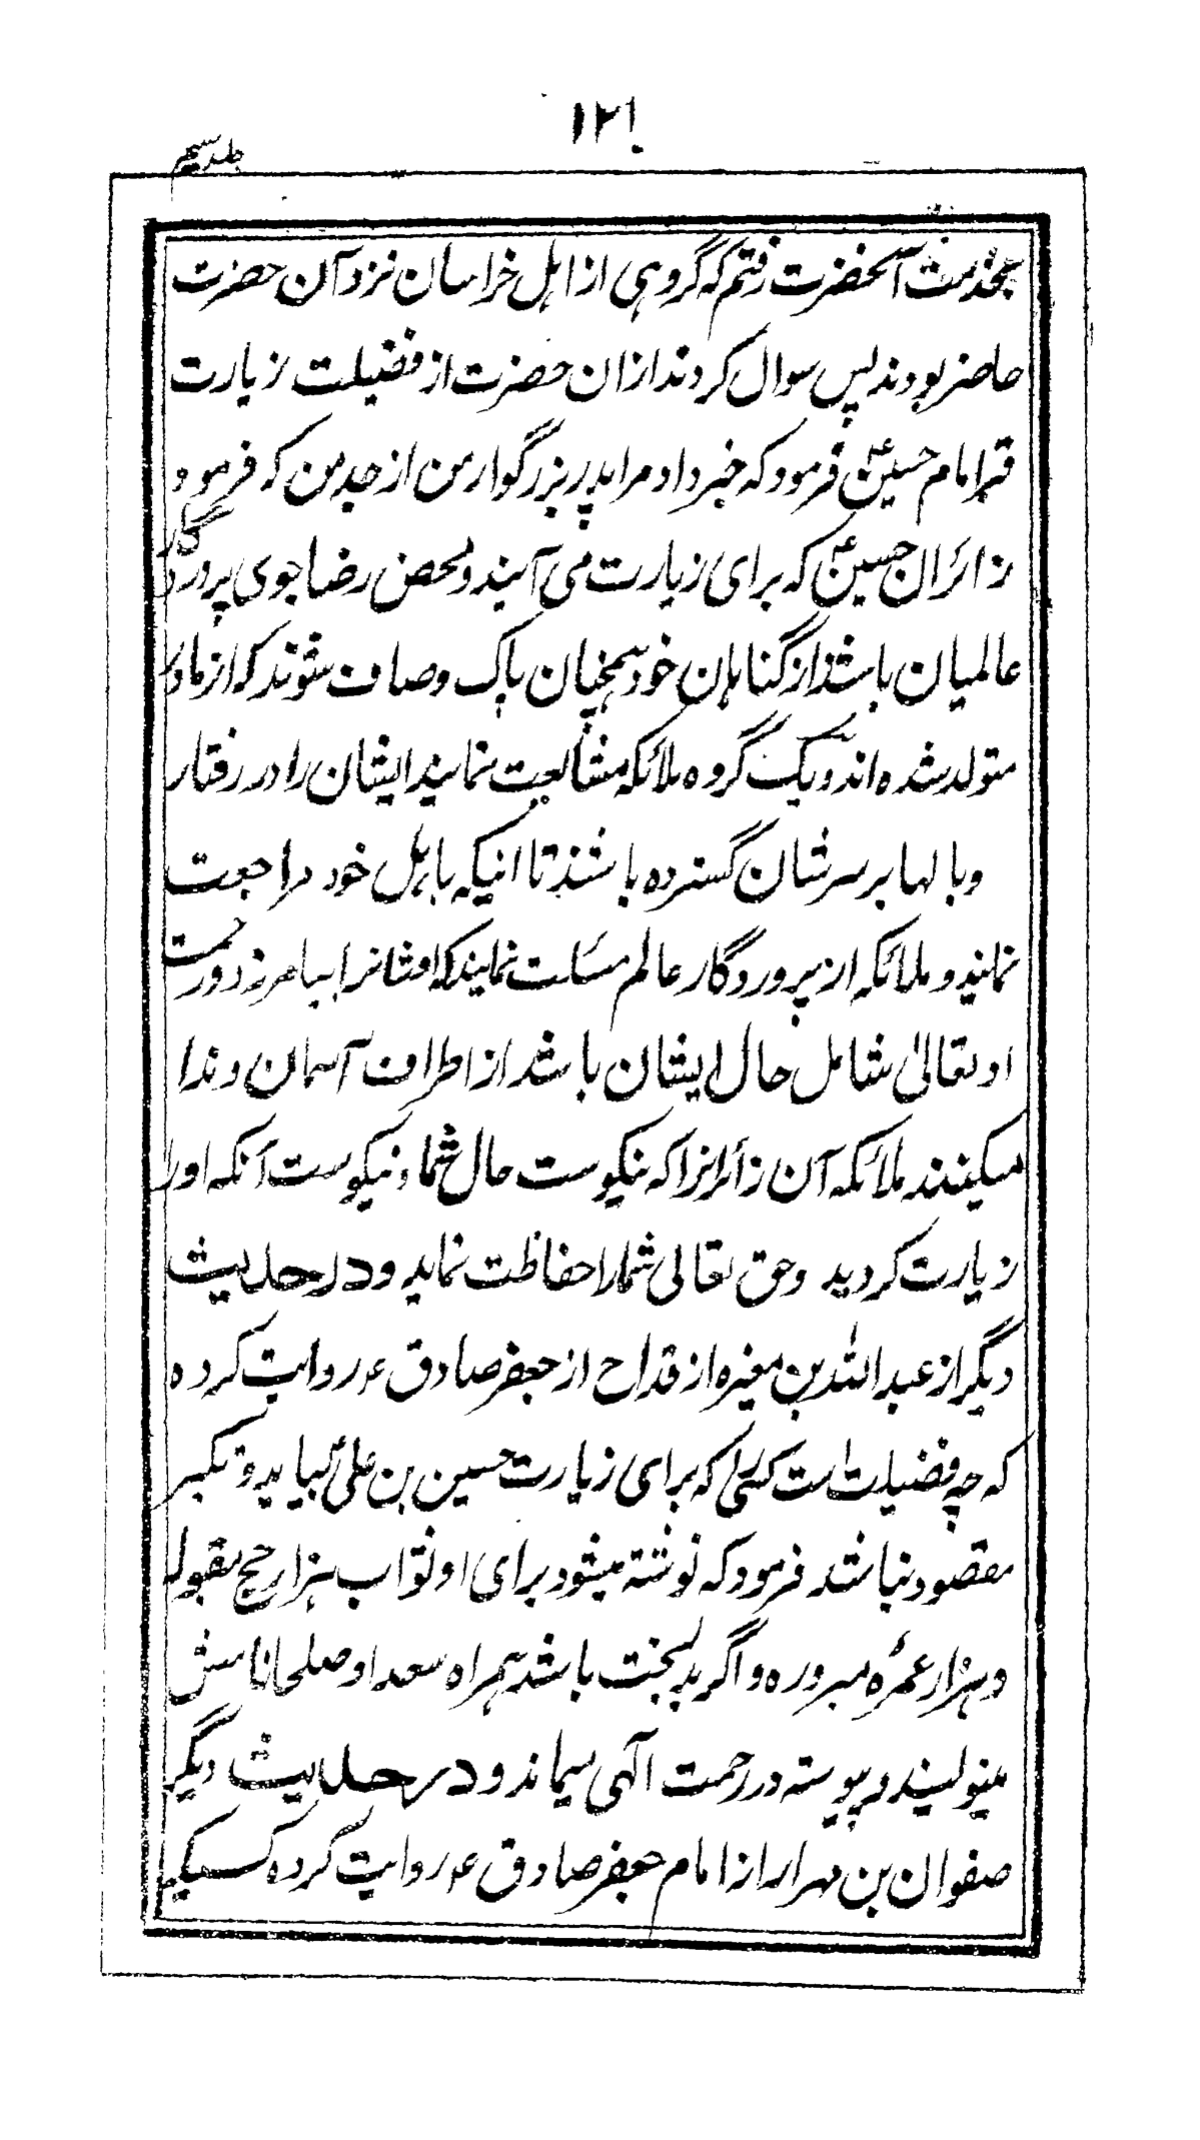 ۱۲۱
جلد سیم
بخدمت آنحضرت رفتم که گروهی از اهل خراسان نزد آن حضرت
حاضر بودند پس سوال کردند ازان حضرت از فضیلت زیارت
قبر امام حسینؑ فرمود که خبر داد مرا پدر بزرگوار من از جد من که فرمود
زائران حسینؑ که برای زیارت می آیند و محض رضا جوی پروردگار
عالمیان باشد از گناهان خود همچنان پاک و صاف شوند که از مادر
متولد شده اند و یک گروه ملائکه مشایعت نمایند ایشان را در رفتار
و بالها بر سرشان گسترده باشند تا اینکه باهل خود مراجعت
نمایند و ملائکه از پروردگار عالم مسئلت نمایند که اوشانرا بیامرزد و رحمت
او تعالیٰ شامل حال ایشان باشد از اطراف آسمان و ندا
میکنند ملائکه آن زائرانرا که نیکوست حال شما و نیکوست آنکه اورا
زیارت کردید وحق تعالی شمارا حفاظت نماید و در حدیث
دیگر از عبد الله بن مغیره از قداح از جعفر صادق ع روایت کرده
که چه فضیلت است کسی را که برای زیارت حسین بن علیؑ بیاید و تکبر
مقصود نباشد فرمود که نوشته میشود برای او ثواب هزار حج مقبوله
و هزار عمرهٔ مبروره و اگر بدبخت باشد همراه سعدا و صلحا نامش
مینویسند و پیوسته در رحمت الٓهی میماند و در حدیث دیگر
صفوان بن مهرار از امام جعفر صادق ع روایت کرده کسیکه